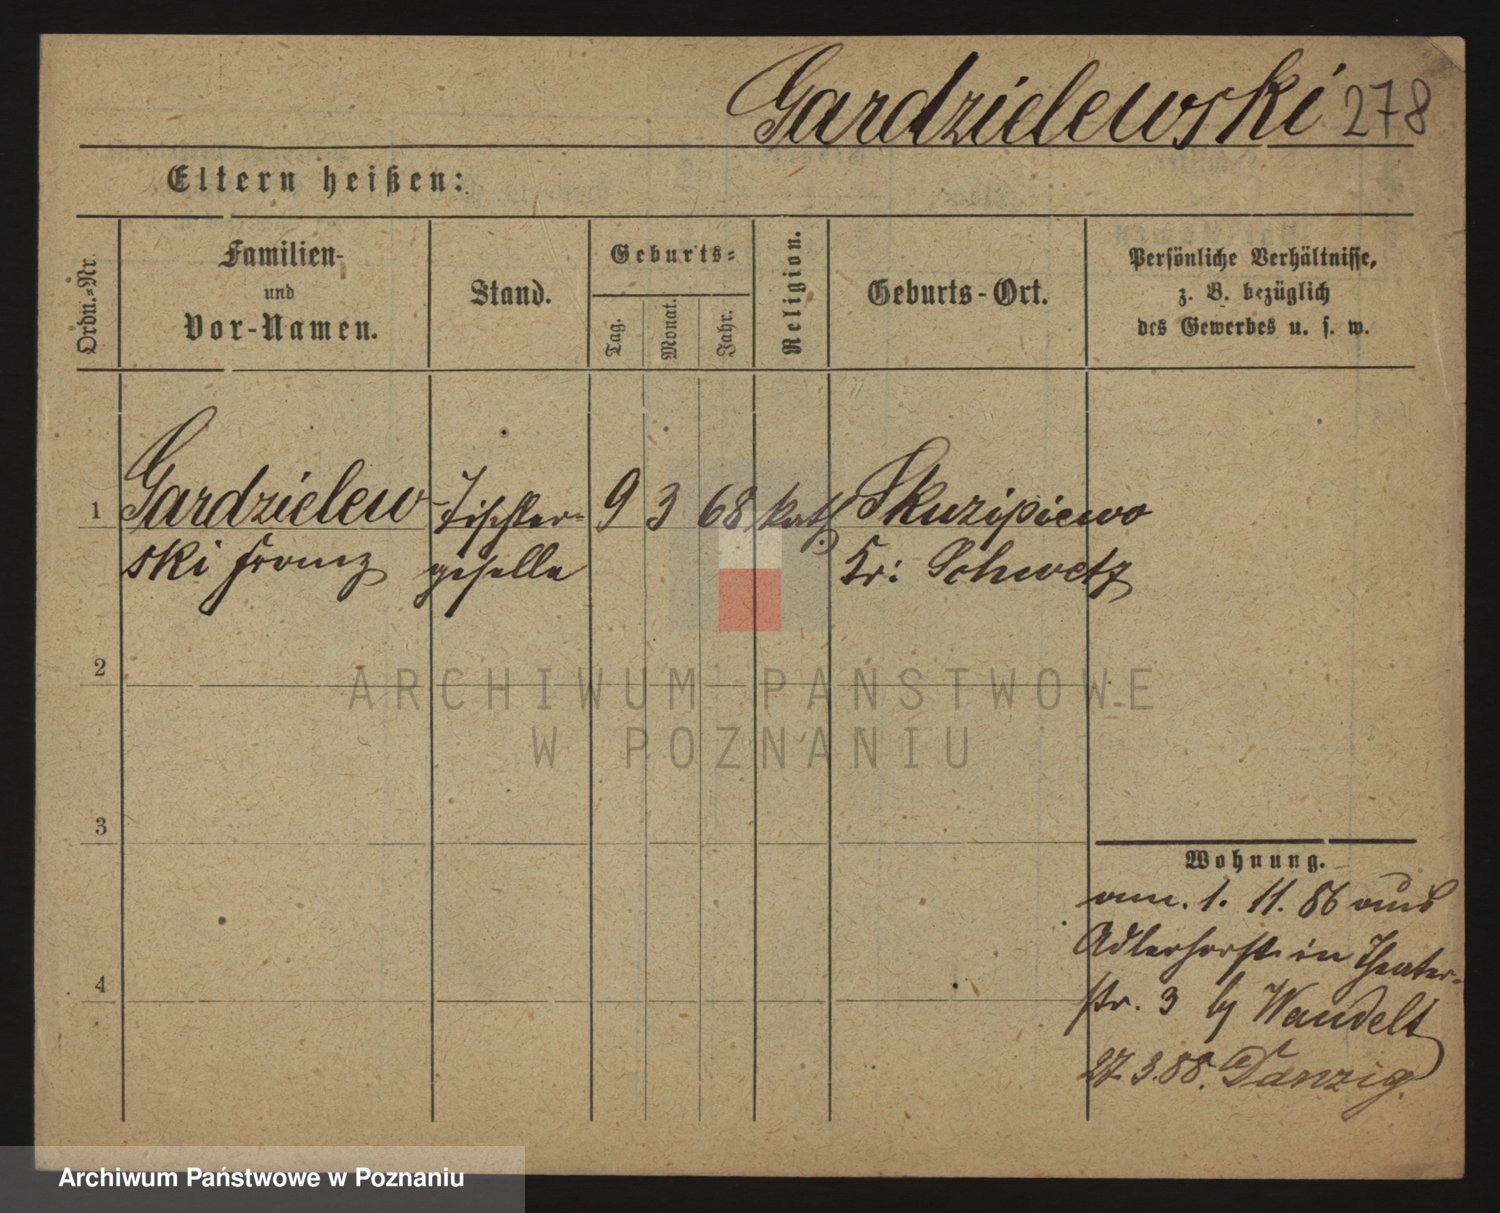 Gardzielewski 278
Eltern heißen:
Ordn.-Nr.
Familien-
und
Vor-Namen.
Stand.
Geburts-
Tag.
Monat.
Jahr.
Religion.
Geburts-Ort.
Persönliche Verhältnisse,
z. B. bezüglich
des Gewerbes u. s. w.
1 Gardzielew Tischler- 9 3 68 kath. Skurzipiewo
ski Franz geselle Kr: Schwetz
2
ARCHIWUM PAŃSTWOWE
W POZNANIU
3
Wohnung.
1. 11. 86 aus
Adlerhorst in Theater-
str. 3 by Wandelt
4
27.3.88. Danzig.
Archiwum Państwowe w Poznaniu